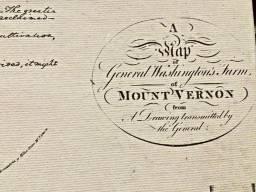 The greater
reclaimed
cultivation,
ried, it might
A
Map
of
General Washington's Farm,
at
MOUNT VERNON
from
A Drawing transmitted by
the General.